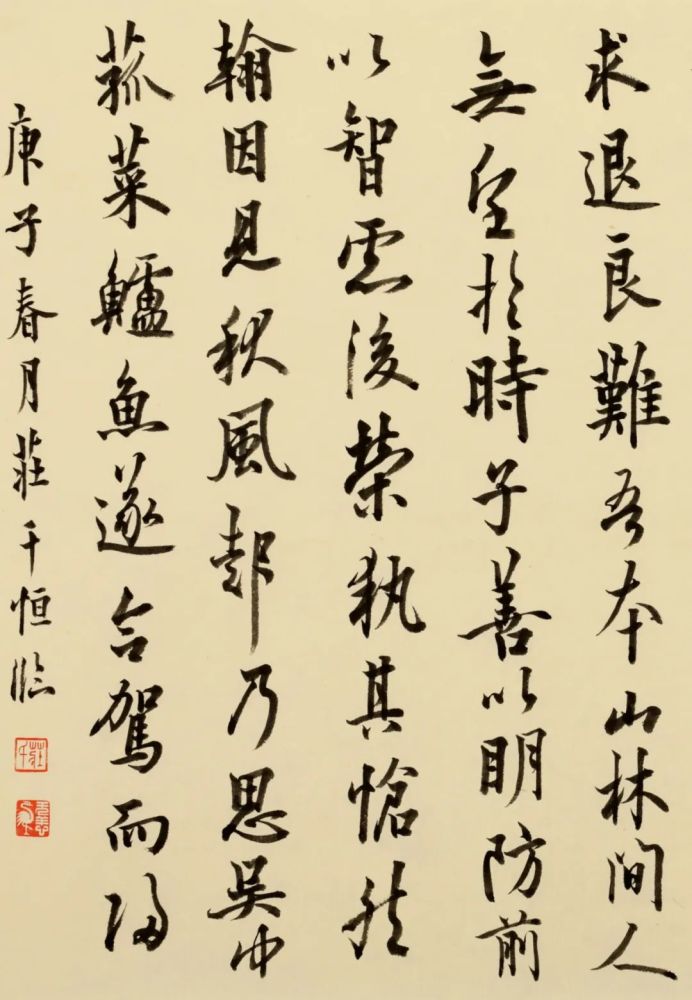 求退良難吾本山林間人
無望於時子善以明防前
以智慮後榮執其愴然
翰因見秋風起乃思吳中
菰菜鱸魚遂命駕而歸
庚子春月莊千恒臨